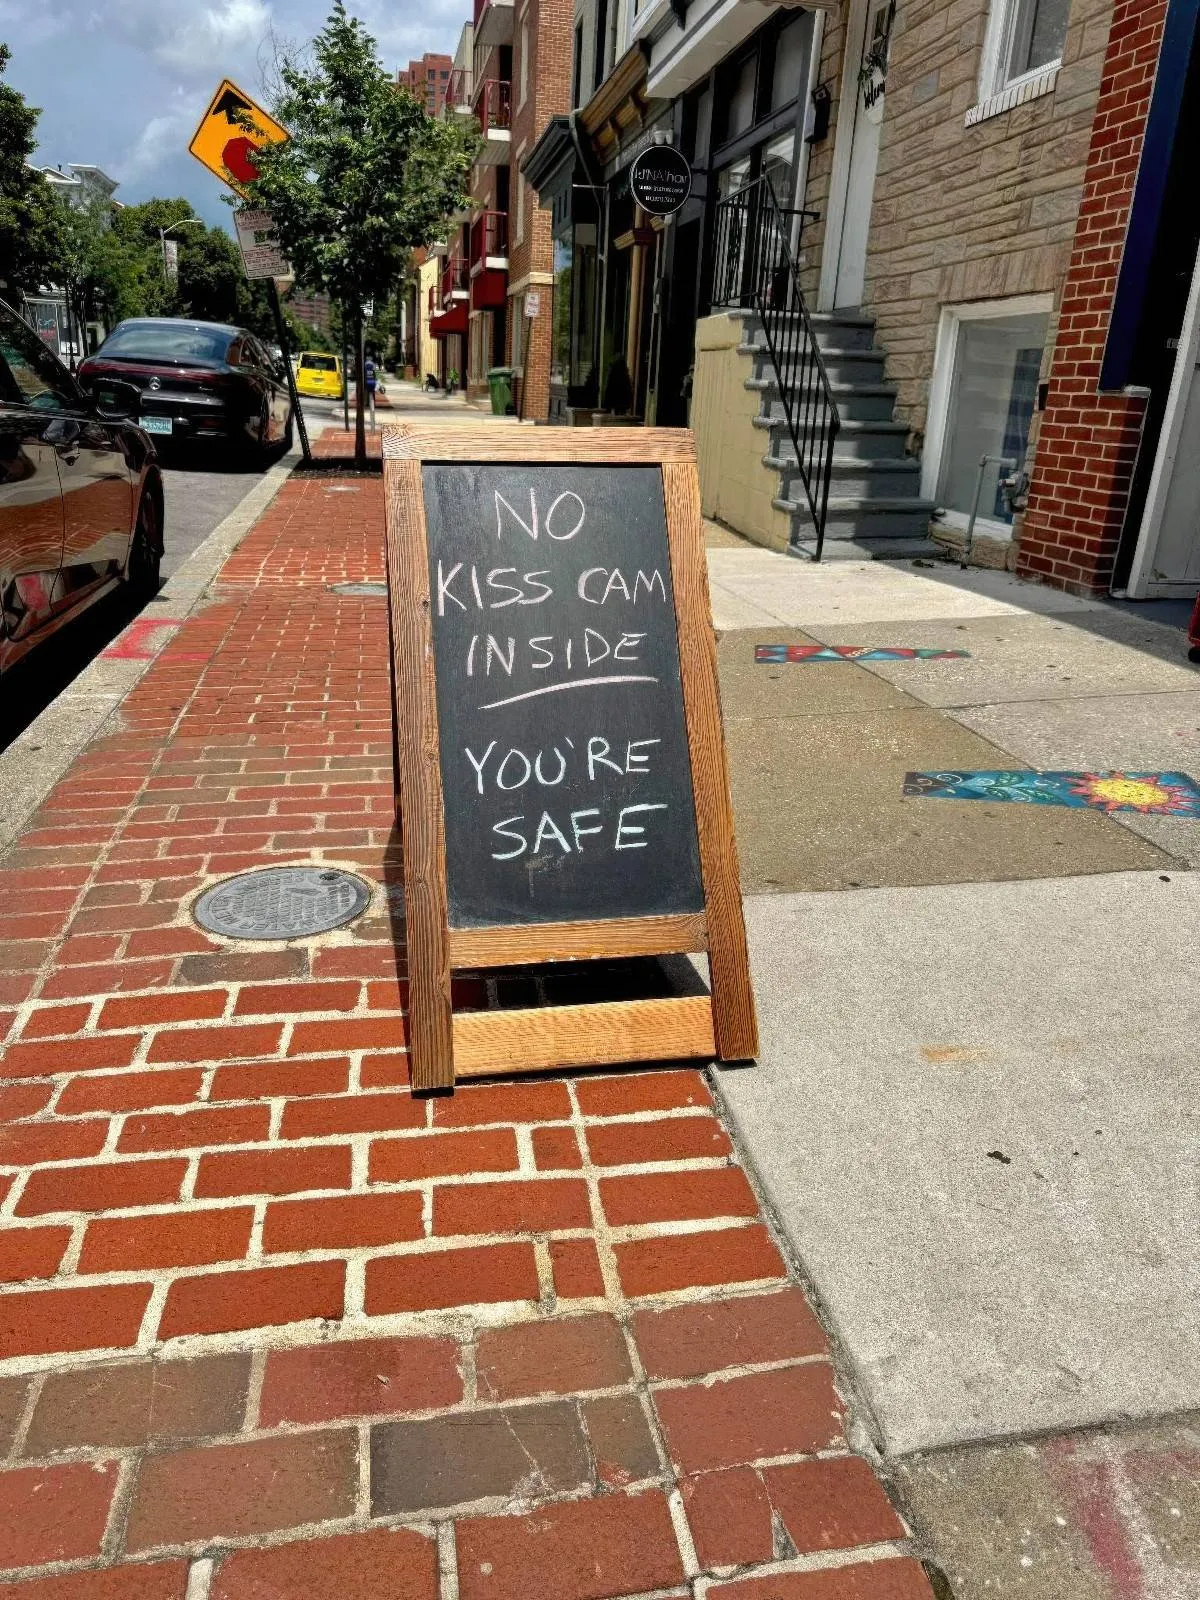 NO
KISS CAM
INSIDE
YOU'RE
SAFE